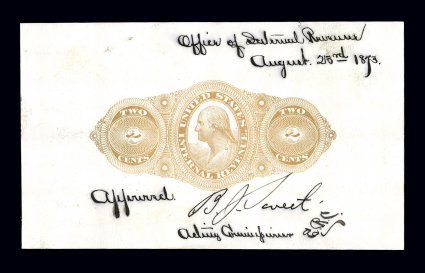 Office of Internal Revenue
August 25rd 1873.
UNITED STATES
TWO
2
CENTS
TWO
2
CENTS
INTERNAL REVENUE
Approved.
B. J. Sweet.
Acting Commissioner